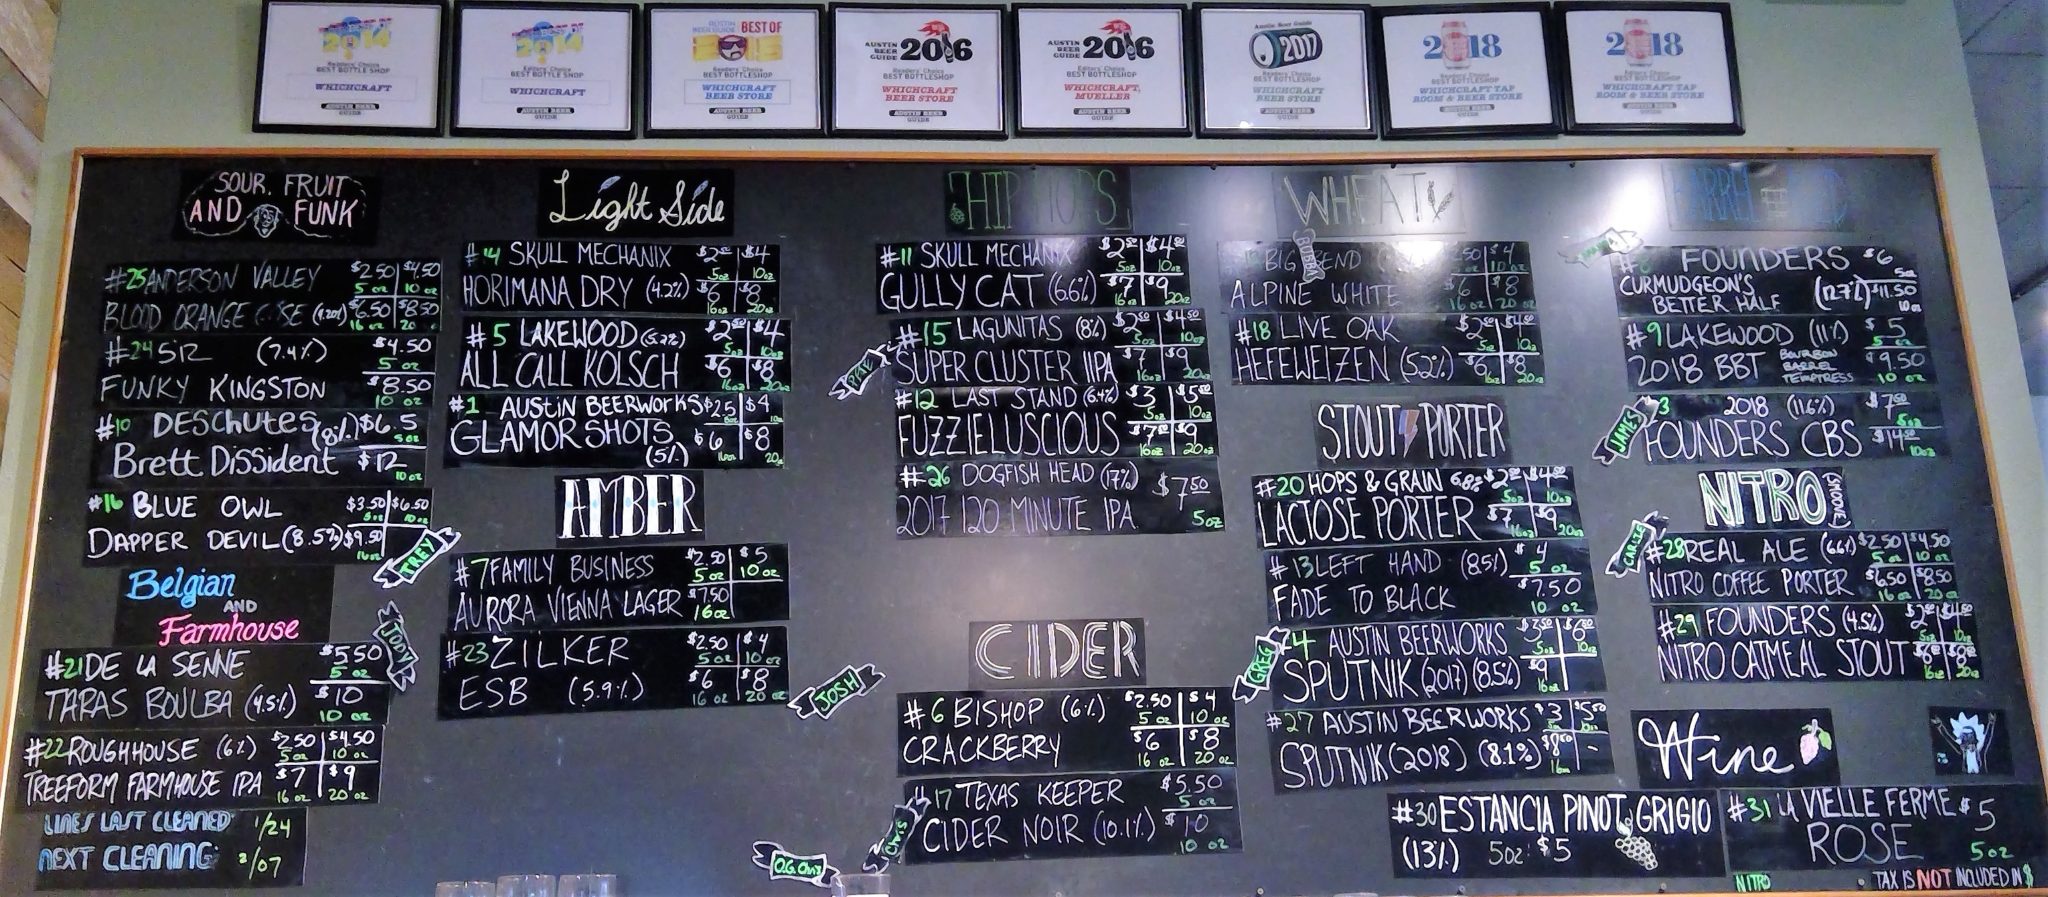 2014
Readers' Choice
BEST BOTTLESHOP
WHICHCRAFT
AUSTIN BEER
GUIDE
2014
Editors' Choice
BEST BOTTLE SHOP
WHICHCRAFT
AUSTIN BEER
GUIDE
BEST OF
Readers' Choice
BEST BOTTLESHOP
WHICHCRAFT
BEER STORE
AUSTIN BEER
GUIDE
AUSTIN BEER GUIDE 2016
Readers' Choice
BEST BOTTLESHOP
WHICHCRAFT
BEER STORE
AUSTIN BEER
GUIDE
AUSTIN BEER GUIDE 2016
Editors' Choice
BEST BOTTLESHOP
WHICHCRAFT,
MUELLER
AUSTIN BEER
GUIDE
Austin Beer Guide
2017
Readers' Choice
BEST BOTTLESHOP
WHICHCRAFT
BEER STORE
AUSTIN BEER
GUIDE
2018
Readers' Choice
BEST BOTTLESHOP
WHICHCRAFT TAP
ROOM & BEER STORE
AUSTIN BEER
GUIDE
2018
Editors' Choice
BEST BOTTLESHOP
WHICHCRAFT TAP
ROOM & BEER STORE
AUSTIN BEER
GUIDE
SOUR, FRUIT
AND FUNK
#25 ANDERSON VALLEY $2.50 $4.50
5 oz 10 oz
BLOOD ORANGE (4.20%) $6.50 $8.50
16 oz 20
#24 512 (7.4%) $4.50
5 oz
FUNKY KINGSTON $8.50
10 oz
#10 DESCHUTES (8%) $6.5
5 oz
Brett Dissident $12
10 oz
#16 BLUE OWL $3.50 $6.50
5 oz 10 oz
DAPPER DEVIL (8.5%) $9.50
16 oz
TREY
Belgian
AND
Farmhouse
JODY
#21 DE LA SENNE $5.50
5 oz
TARAS BOULBA (4.5%) $10
10 oz
#22 ROUGHHOUSE (6%) $2.50 $4.50
5 oz 10 oz
TREEFORM FARMHOUSE IPA $7 $9
16 oz 20 oz
LINES LAST CLEANED: 1/24
NEXT CLEANING: 2/07
Light Side
#14 SKULL MECHANIX $2.50 $4
5 oz 10 oz
HORIMANA DRY (4.2%) $6 $8
16 oz 20 oz
#5 LAKEWOOD (5.2%) $2.50 $4
5 oz 10 oz
ALL CALL KOLSCH $6 $8
16 oz 20 oz
#1 AUSTIN BEERWORKS $2.5 $4
10 oz
GLAMOR SHOTS $6 $8
(5%) 16 oz 20 oz
AMBER
#7 FAMILY BUSINESS $2.50 $5
5 oz 10 oz
AURORA VIENNA LAGER $7.50
16 oz
#23 ZILKER $2.50 $4
5 oz 10 oz
ESB (5.9%) $6 $8
16 oz 20 oz
JOSH
O.G. Chris
HIP HOPS
#11 SKULL MECHANIX $2.50 $4.50
5 oz 10 oz
GULLY CAT (6.6%) $7 $9
16 oz 20 oz
#15 LAGUNITAS (8%) $2.50 $4.50
5 oz 10 oz
SUPER CLUSTER IIPA $7 $9
16 oz 20 oz
#12 LAST STAND (6.4%) $3 $5.00
5 oz 10 oz
FUZZIELUSCIOUS $7.50 $9
16 oz 20 oz
#26 DOGFISH HEAD (17%) $7.50
2017 120 MINUTE IPA 5 oz
CIDER
#6 BISHOP (6%) $2.50 $4
5 oz 10 oz
CRACKBERRY $6 $8
16 oz 20 oz
#17 TEXAS KEEPER $5.50
5 oz
CIDER NOIR (10.1%) $10
10 oz
Chris
WHEAT
BUBBA
BIG BEND $4
10 oz
ALPINE WHITE $6 $8
16 oz 20 oz
#18 LIVE OAK $2.50 $4.50
5 oz 10 oz
HEFEWEIZEN (5.2%) $6 $8
16 oz 20 oz
STOUT PORTER
#20 HOPS & GRAIN 6.8% $2.50 $4.50
5 oz 10 oz
LACTOSE PORTER $7 $9
16 oz 20 oz
#13 LEFT HAND (8.5%) $4
5 oz
FADE TO BLACK $7.50
10 oz
GREG
#4 AUSTIN BEERWORKS $3.50 $6
5 oz 10 oz
SPUTNIK (2017) (8.5%) $9
16 oz
#27 AUSTIN BEERWORKS $3 $5.50
SPUTNIK (2018) (8.1%) $8.50 -
16 oz
FOUNDERS $6
5 oz
CURMUDGEON'S
BETTER HALF (12.7%) $11.50
10 oz
#9 LAKEWOOD (11%) $5
5 oz
2018 BBT BOURBON BARREL TEMPTRESS $9.50
10 oz
JAMES
3 2018 (11.6%) $7.50
5 oz
FOUNDERS CBS $14.00
10 oz
NITRO
(SMOOVE)
CARLIE
#28 REAL ALE (6.6%) $2.50 $4.50
5 oz 10 oz
NITRO COFFEE PORTER $6.50 $8.50
16 oz 20 oz
#29 FOUNDERS (4.5%) $2.50 $4.50
5 oz 10 oz
NITRO OATMEAL STOUT $6 $8
16 oz 20 oz
Wine
#30 ESTANCIA PINOT GRIGIO
(13%) 5oz: $5
#31 LA VIELLE FERME $5
ROSE 5 oz
NITRO
TAX IS NOT INCLUDED IN $